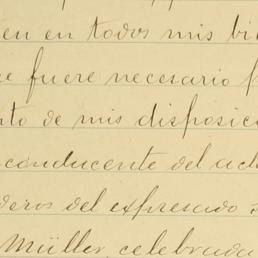 en en todos mis bi
e fuere necesario p
to de mis disposic
conducente del ac
deros del expresado
Müller, celebrada